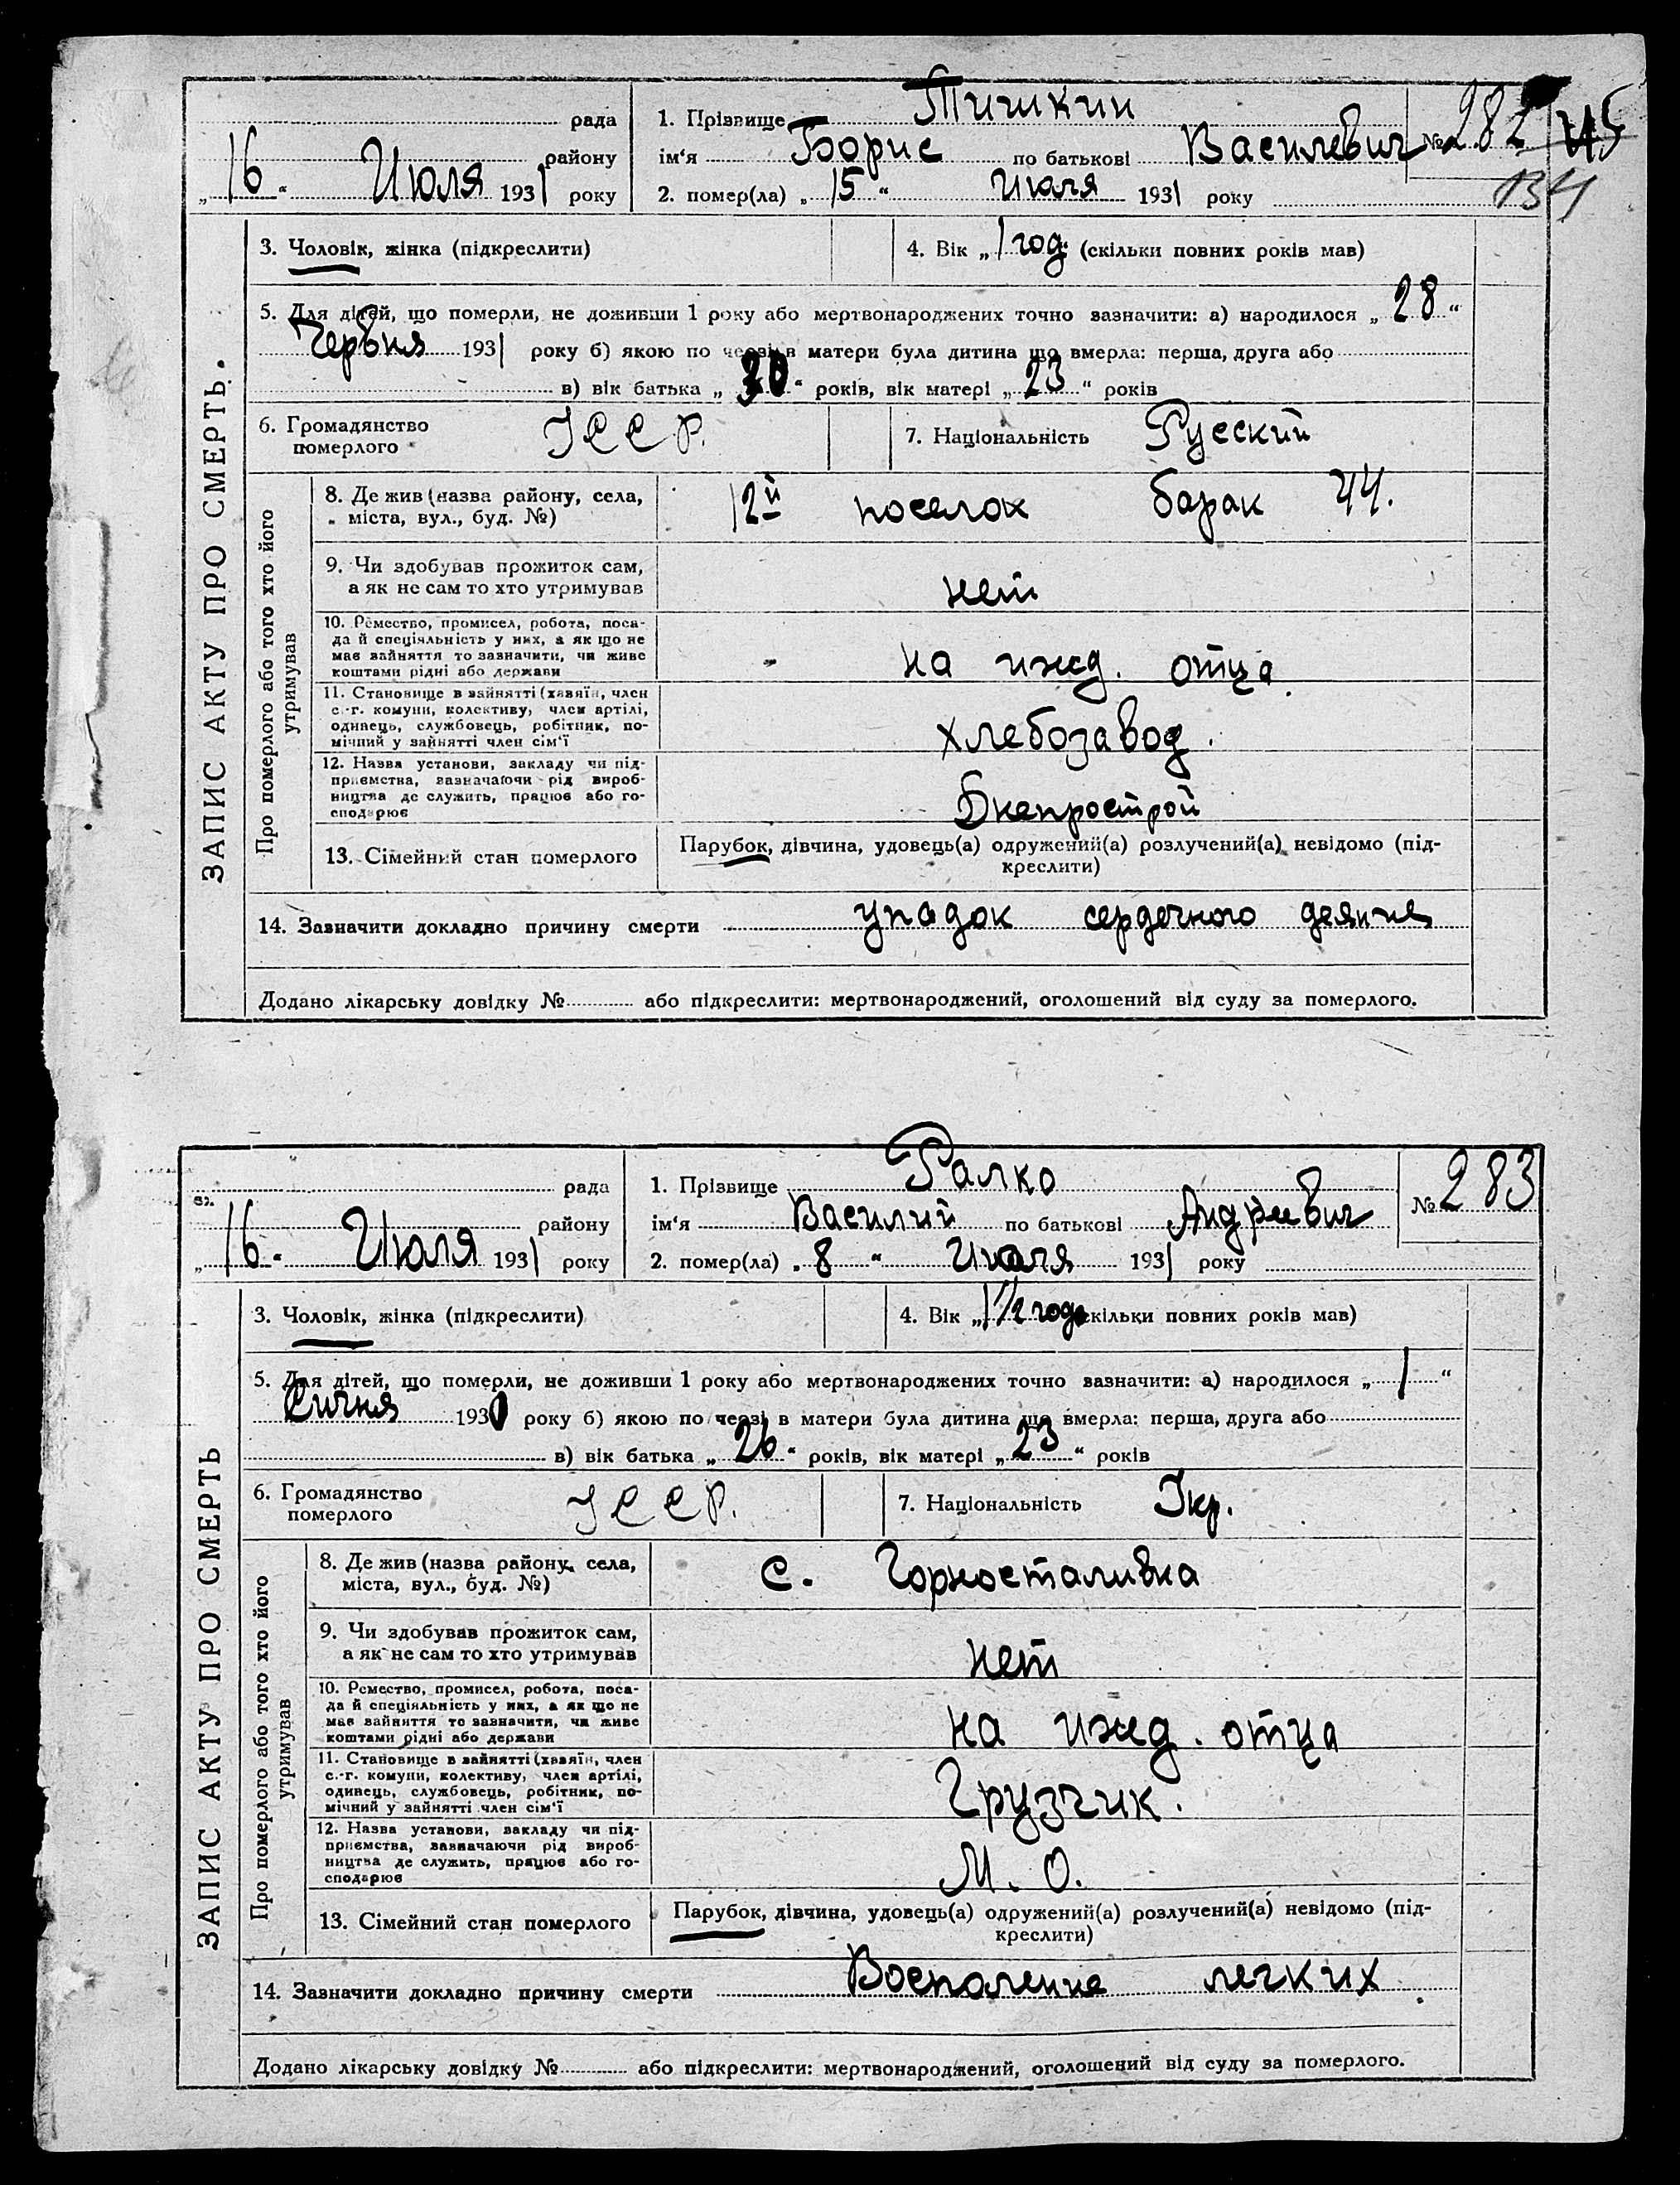 рада 1. Прізвище Тишкин № 282
району ім'я Борис по батькові Василевич
„16“ Июля 1931 року 2. помер(ла) „15“ Июля 1931 року 134
ЗАПИС АКТУ ПРО СМЕРТЬ.
3. Чоловік, жінка (підкреслити) 4. Вік „1 год. (скільки повних років мав)
5. Для дітей, що померли, не доживши 1 року або мертвонароджених точно зазначити: а) народилося „28“
Червня 1931 року б) якою по черзі в матери була дитина що вмерла: перша, друга або
в) вік батька „30“ років, вік матері „23“ років
6. Громадянство УССР. 7. Національність Русский
померлого
Про померлого або того хто його
утримував
8. Де жив (назва району, села, 12й поселок барак 44.
міста, вул., буд. №)
9. Чи здобував прожиток сам,
а як не сам то хто утримував нет
10. Ремество, промисел, робота, поса-
да й спеціяльність у них, а як що не
має зайняття то зазначити, чи живе на ижд. отца
коштами рідні або держави
11. Становище в зайнятті (хазяїн, член
с.-г. комуни, колективу, член артілі,
одинець, службовець, робітник, по- хлебозавод.
мічний у зайнятті член сім'ї
12. Назва установи, закладу чи під-
приємства, зазначаючи рід вироб-
ництва де служить, працює або го- Днепрострой
сподарює
13. Сімейний стан померлого Парубок, дівчина, удовець(а) одружений(а) розлучений(а) невідомо (під-
креслити)
14. Зазначити докладно причину смерти упадок сердечного деяния
Додано лікарську довідку № або підкреслити: мертвонароджений, оголошений від суду за померлого.
рада 1. Прізвище Ралко № 283
району ім'я Василий по батькові Андриевич
„16“ Июля 1931 року 2. помер(ла) „8“ Июля 1931 року
ЗАПИС АКТУ ПРО СМЕРТЬ
3. Чоловік, жінка (підкреслити) 4. Вік „1 1/2 год скільки повних років мав)
5. Для дітей, що померли, не доживши 1 року або мертвонароджених точно зазначити: а) народилося „1“
Сичня 1930 року б) якою по черзі в матери була дитина що вмерла: перша, друга або
в) вік батька „26“ років, вік матері „23“ років
6. Громадянство УССР. 7. Національність Укр.
померлого
Про померлого або того хто його
утримував
8. Де жив (назва району, села, с. Горносталивка
міста, вул., буд. №)
9. Чи здобував прожиток сам,
а як не сам то хто утримував нет
10. Ремество, промисел, робота, поса-
да й спеціяльність у них, а як що не
має зайняття то зазначити, чи живе на ижд. отца
коштами рідні або держави
11. Становище в зайнятті (хазяїн, член
с.-г. комуни, колективу, член артілі,
одинець, службовець, робітник, по- Грузчик.
мічний у зайнятті член сім'ї
12. Назва установи, закладу чи під-
приємства, зазначаючи рід вироб-
ництва де служить, працює або го- М. О.
сподарює
13. Сімейний стан померлого Парубок, дівчина, удовець(а) одружений(а) розлучений(а) невідомо (під-
креслити)
14. Зазначити докладно причину смерти Воспаление легких
Додано лікарську довідку № або підкреслити: мертвонароджений, оголошений від суду за померлого.